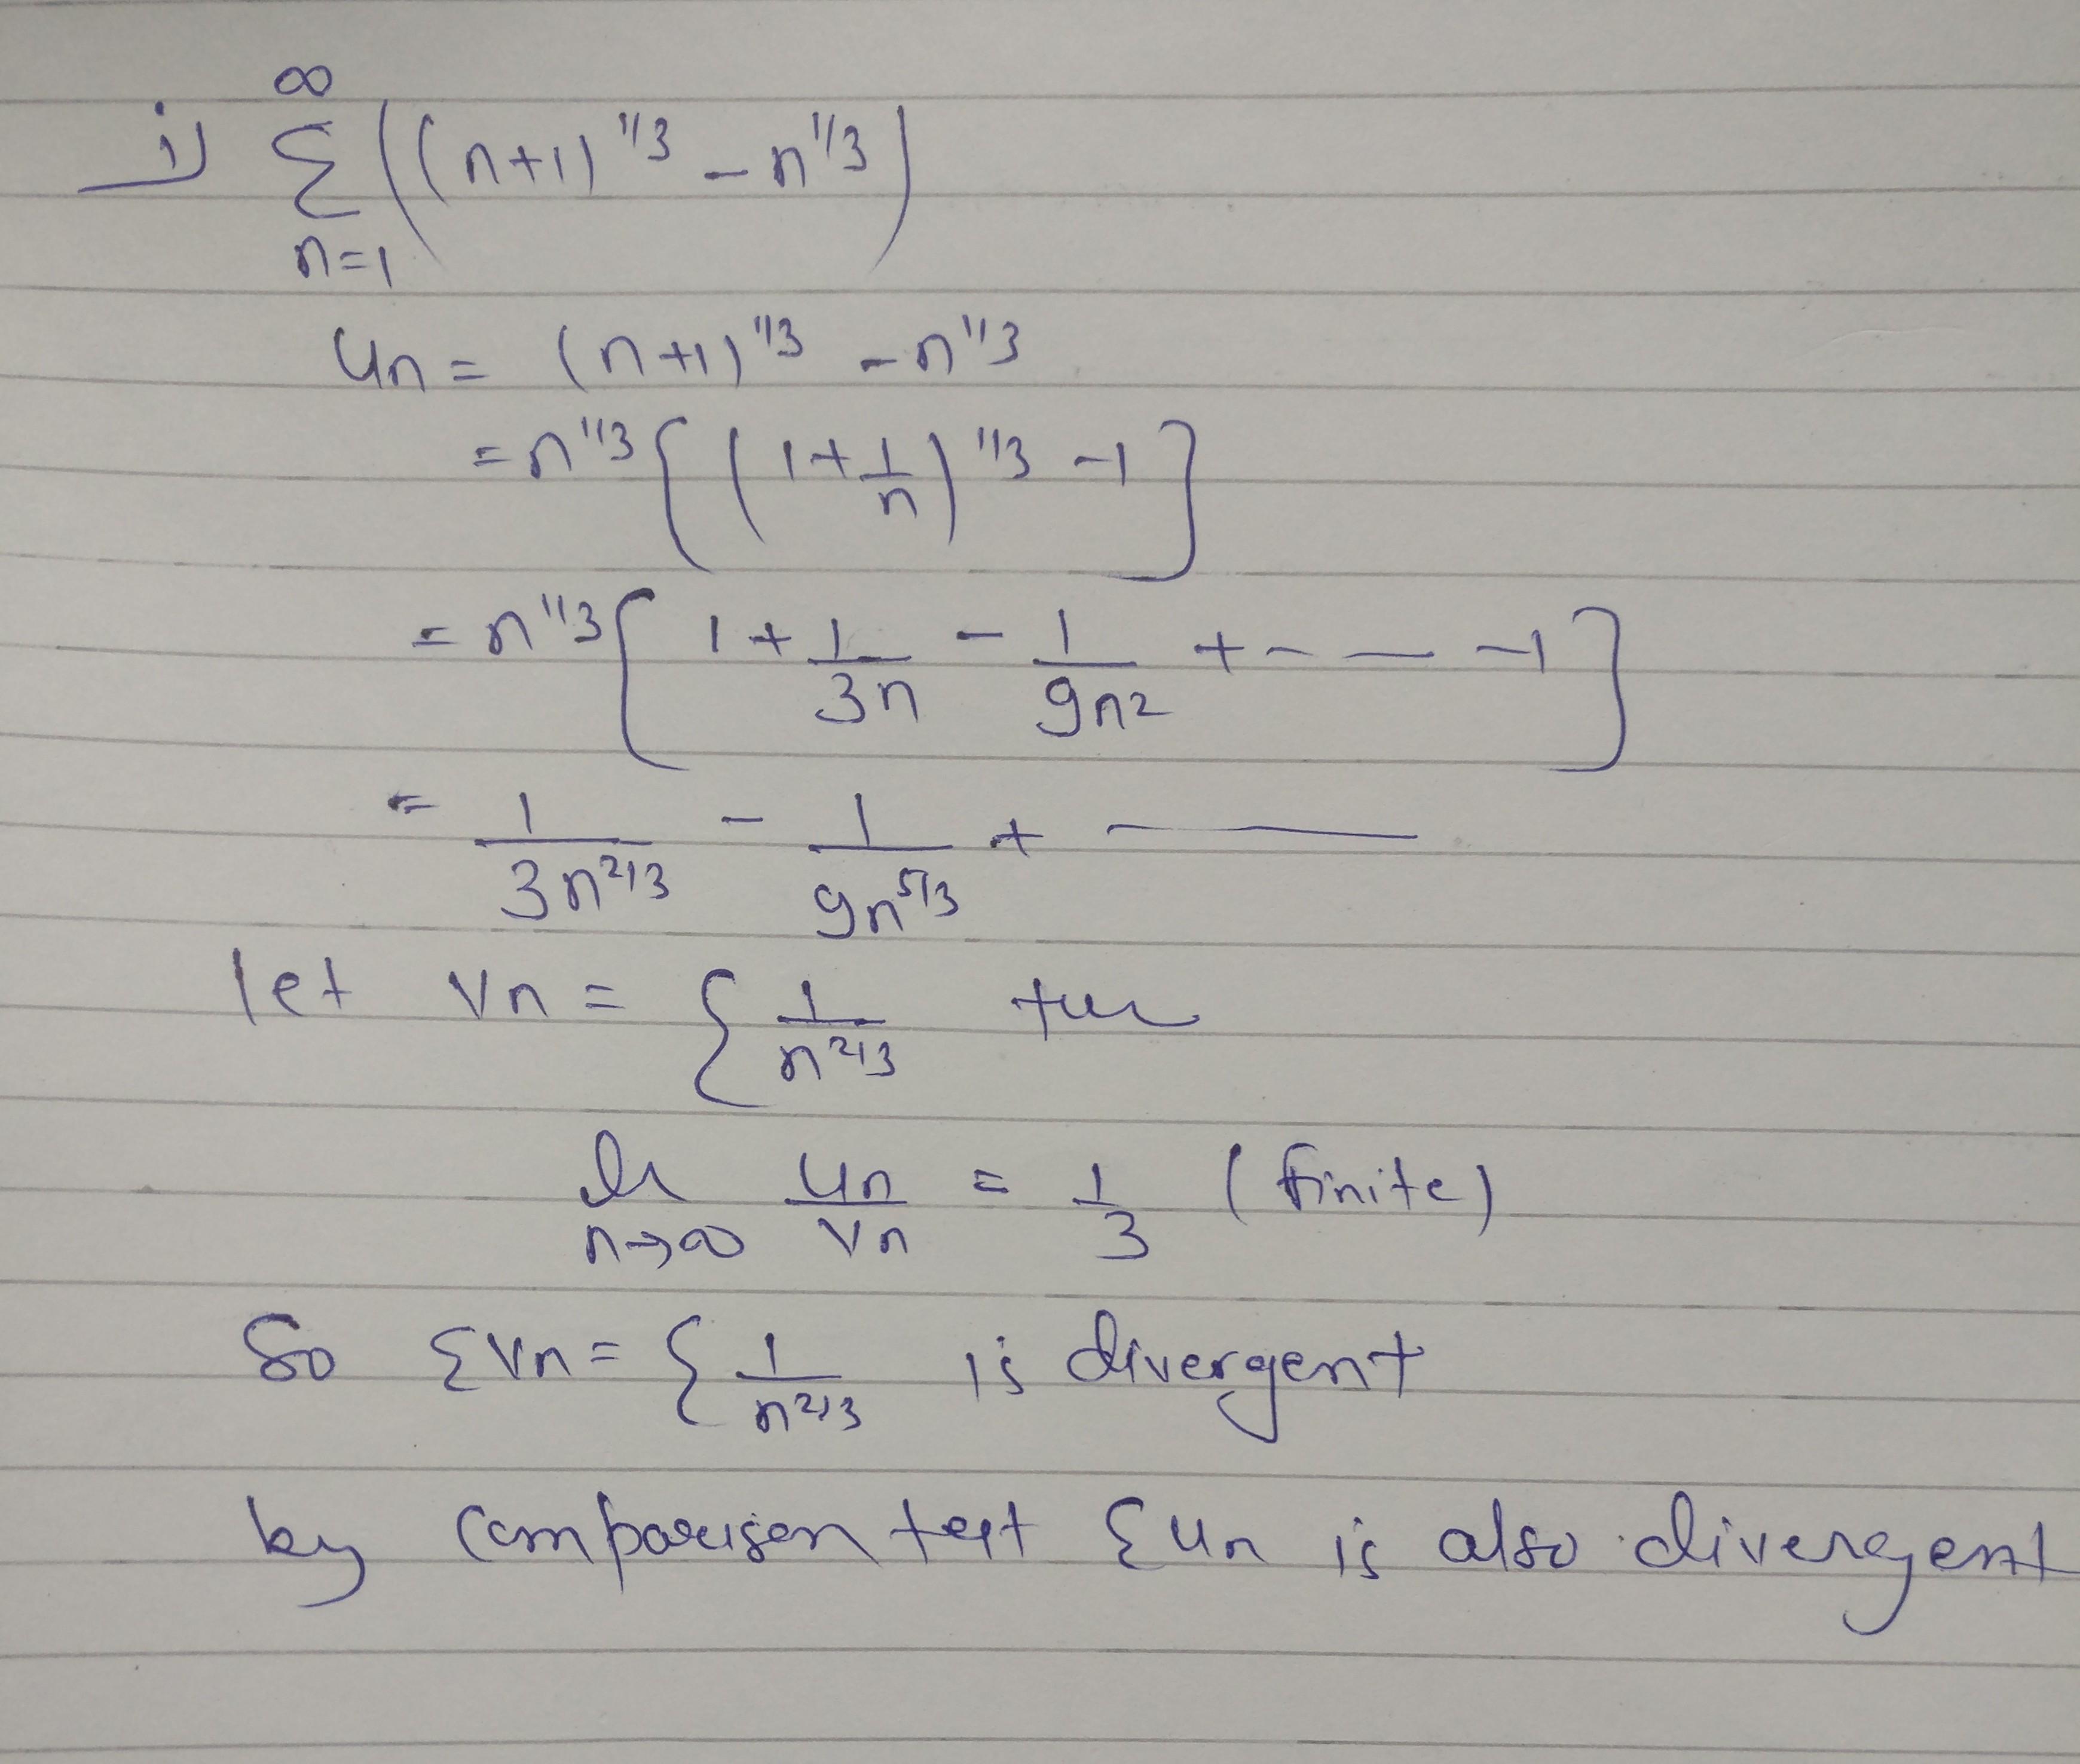 i) ∞ Σ n=1 ((n+1)^1/3 - n^1/3)
un = (n+1)^1/3 - n^1/3
= n^1/3 { (1 + 1/n)^1/3 - 1 ]
= n^1/3 [ 1 + 1/3n - 1/9n2 + - - - -1 ]
= 1/3n^2/3 - 1/9n^5/3 + ———
let vn = Σ 1/n^2/3
n→∞ un/vn = 1/3 (finite)
So Σvn = Σ 1/n^2/3 is divergent
by comparison test Σun is also divergent